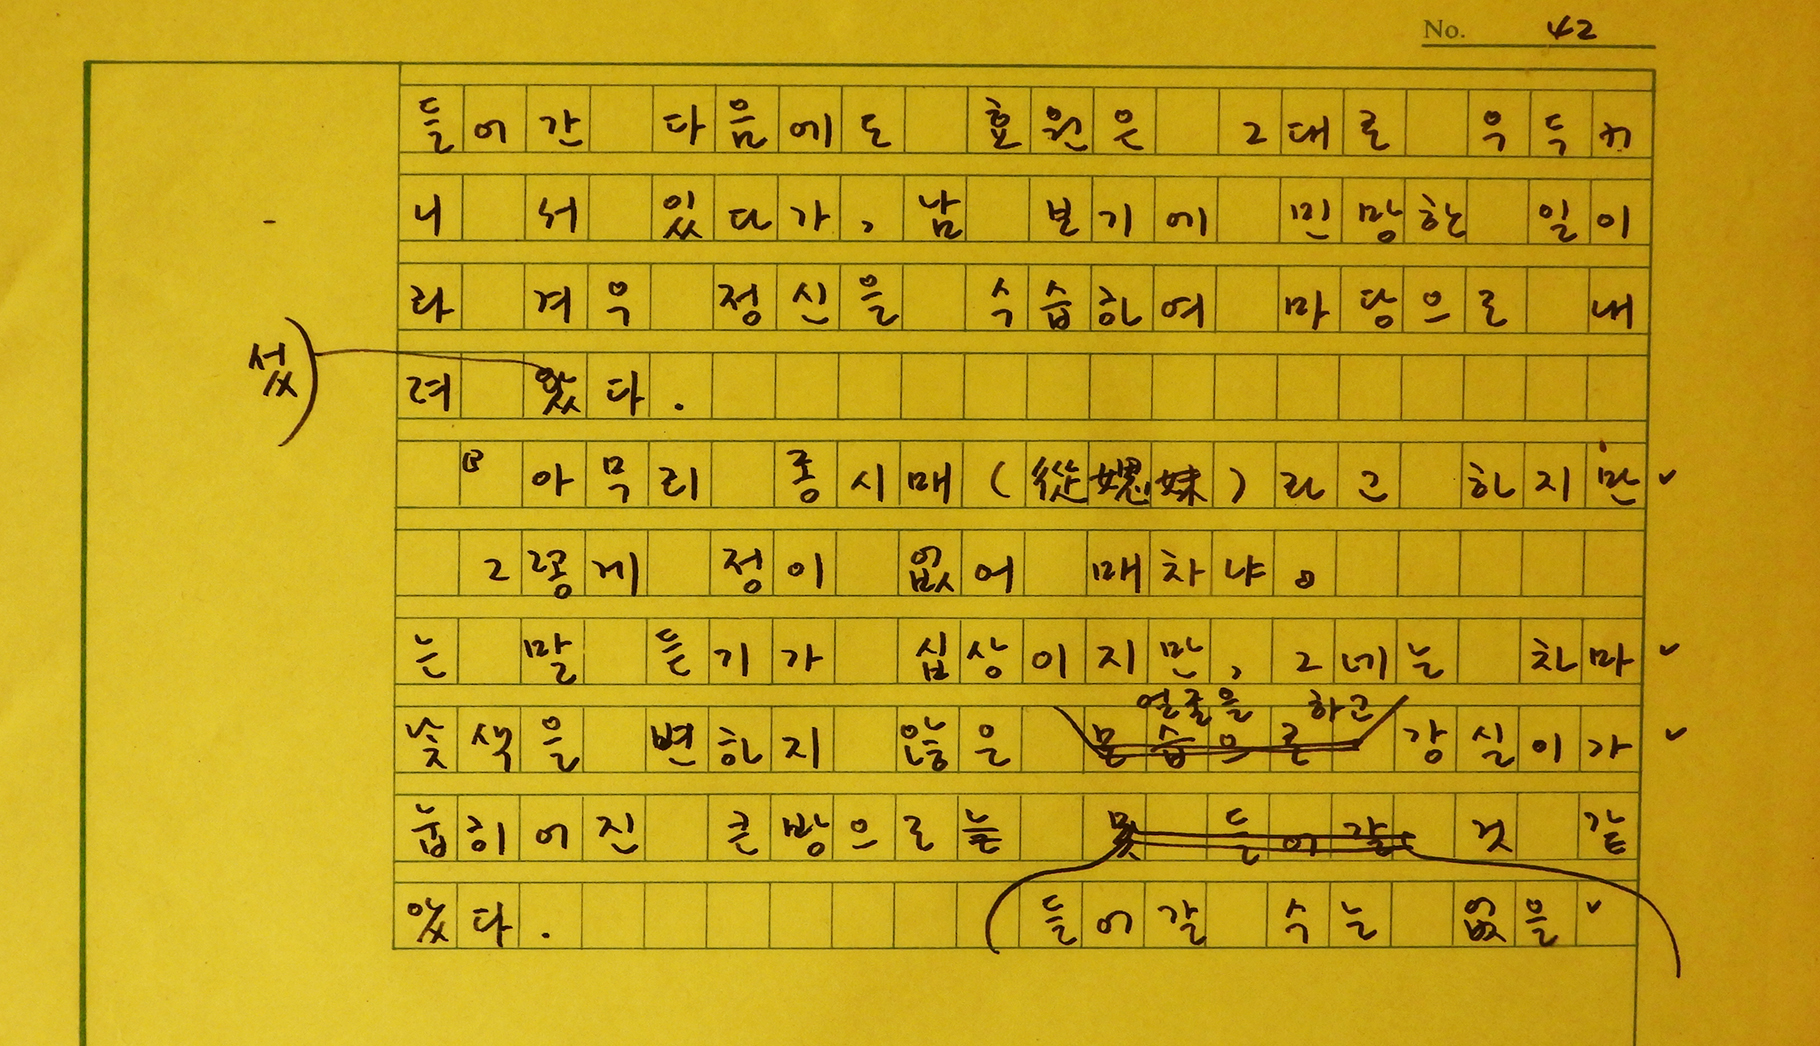 No. 42
들어간 다음에도 효원은 그대로 우두커
니 서 있다가, 남 보기에 민망한 일이
라 겨우 정신을 수습하여 마당으로 내
섰
려 왔다.
아무리 종시매(從媤妹)라고 하지만
그렇게 정이 없어 매차냐。
는 말 듣기가 십상이지만, 그네는 차마
얼굴을 하고
낯색을 변하지 않은 모습으로 강실이가
눕히어진 큰방으로는 못 들어갈 것 같
았다. 들어갈 수는 없을